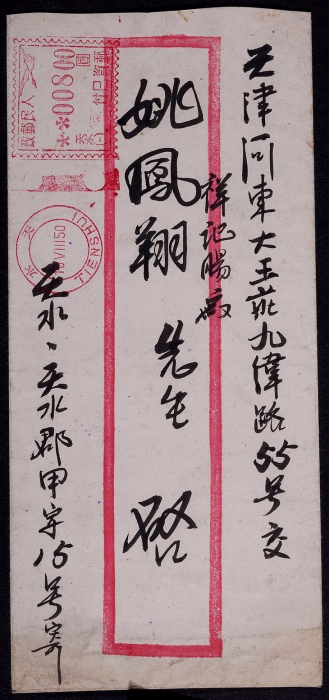 天津河東大王莊九緯路55号交
祥記腸廠
姚鳳翔 先生 啓
天水、天水郡甲字15号寄
人民郵政
00800
圓
TIENSHUI
VIII50
天水